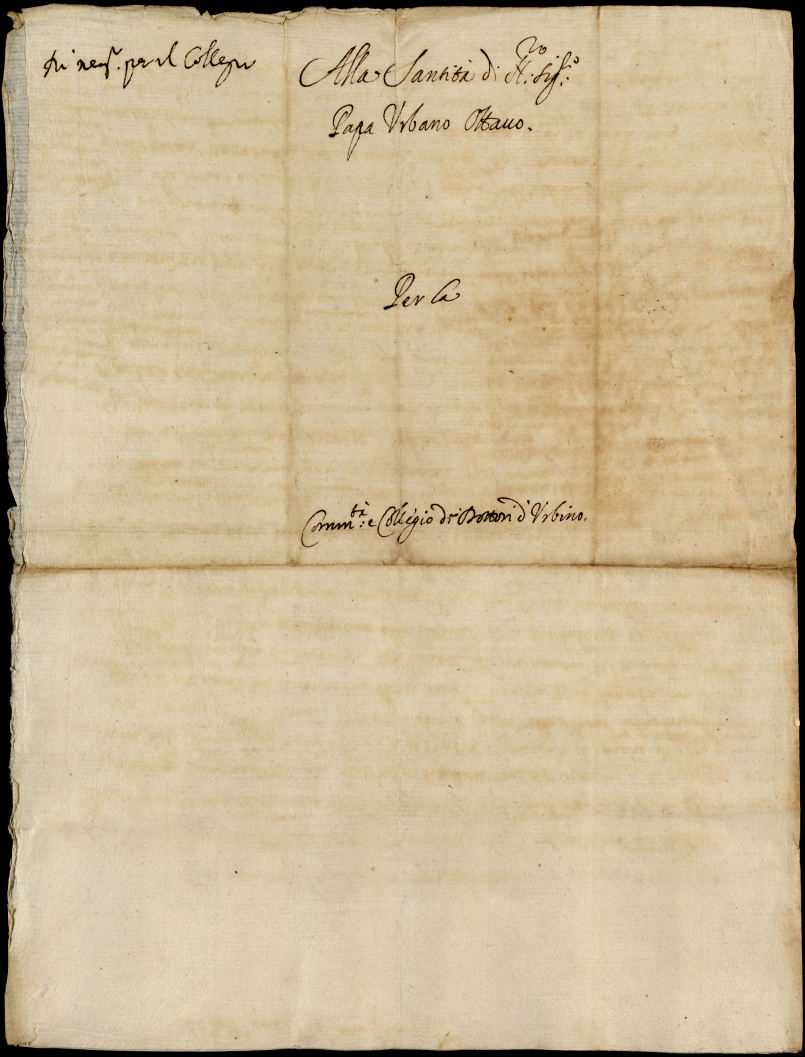 per il Collegio
Alla Santità di N.ro Sig.re
Papa Vrbano Ottauo.
Per la
Comm.tà: e Collegio de i Dottori d'Vrbino.